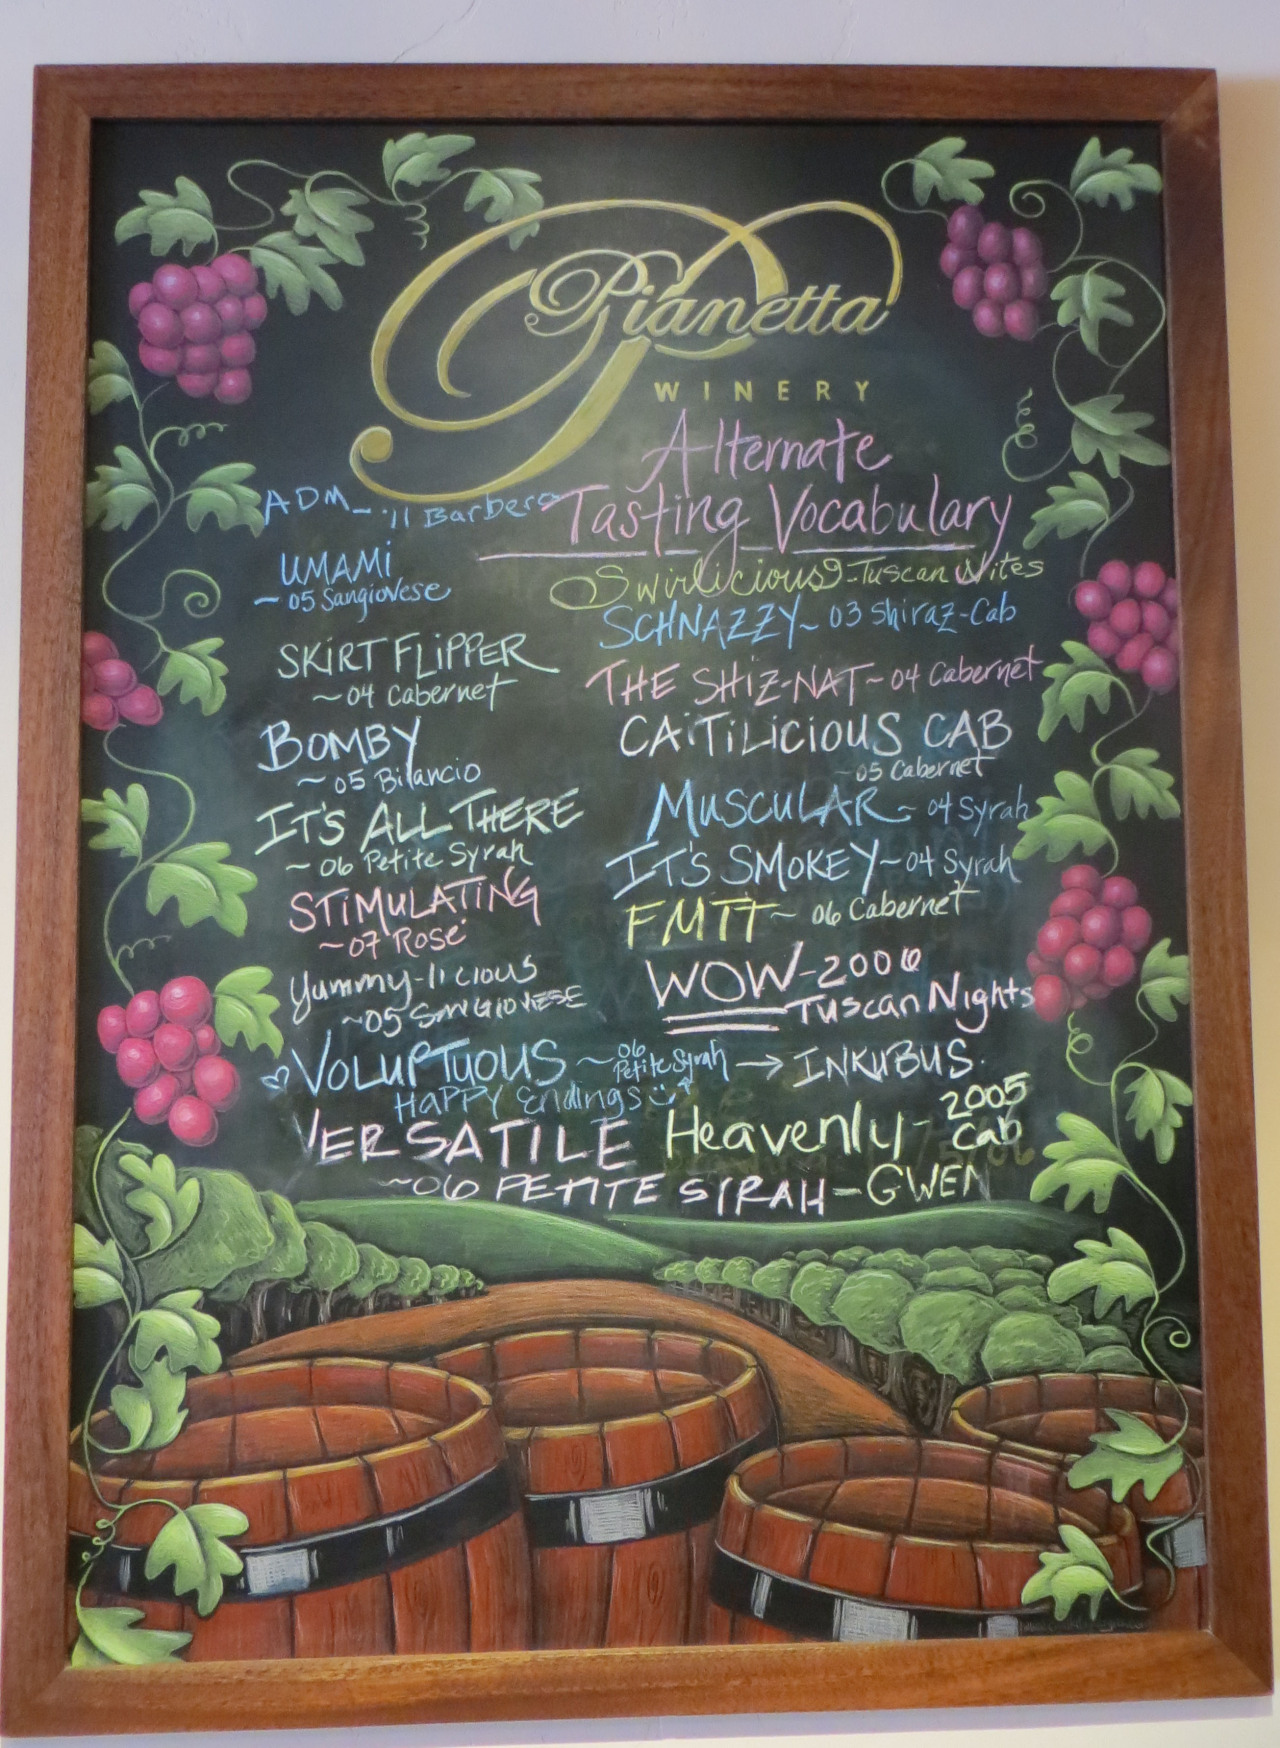 Pianetta
WINERY
Alternate
Tasting Vocabulary
ADM - '11 Barbera
UMAMi
~ 05 Sangiovese
SKiRT FLiPPER
~ 04 Cabernet
BOMBY
~ 05 Bilancio
IT'S ALL THERE
~ 06 Petite Syrah
STiMULATiNG
~ 07 Rosé
Yummy-licious
~05 SANGIOVESE
VOLUPTUOUS ~ 06 Petite Syrah → INKUBUS.
HAPPY Endings
VERSATILE
~06 PETITE SIRAH - GWEN
Swirlicious - Tuscan Nites
SCHNAZZY ~ 03 Shiraz-Cab
THE SHiZ-NAT ~ 04 Cabernet
CAiTiLiCiOUS CAB
~ 05 Cabernet
MUSCULAR ~ 04 Syrah
IT'S SMOKEY ~ 04 Syrah
FMTT ~ 06 Cabernet
WOW - 2006
Tuscan Nights
Heavenly - 2005 Cab